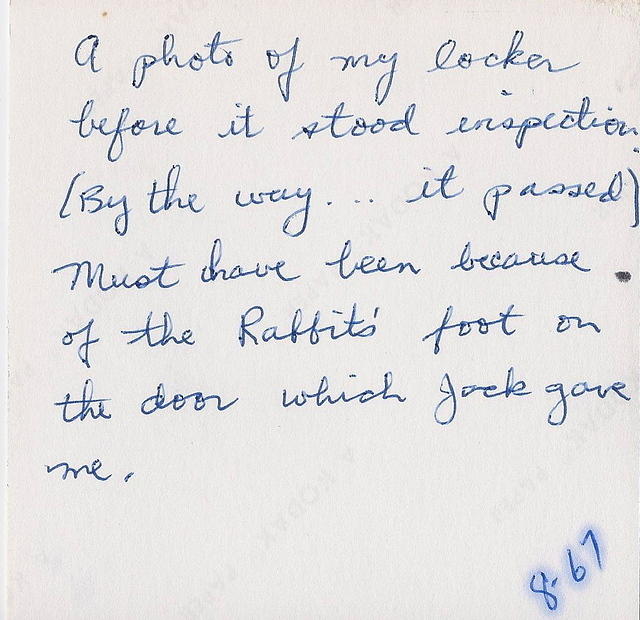 A photo of my locker
before it stood inspection.
(By the way... it passed)
Must have been because
of the Rabbit's foot on
the door which Jack gave
me.
8-67